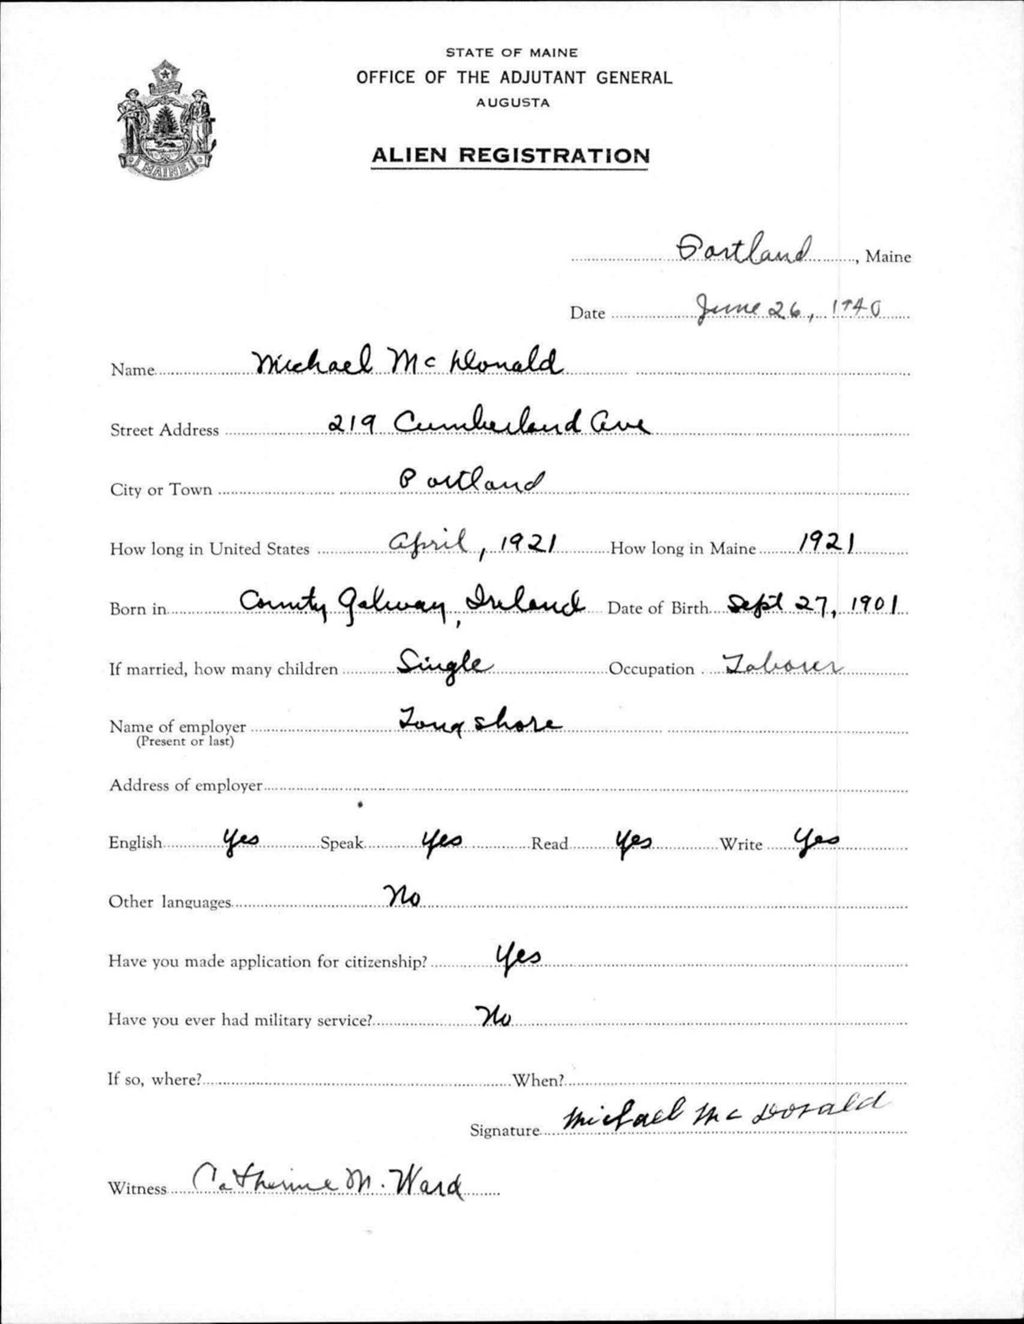 STATE OF MAINE
OFFICE OF THE ADJUTANT GENERAL
AUGUSTA
ALIEN REGISTRATION
MAINE
Portland, Maine
Date June 26, 1940
Name Michael McDonald
Street Address 219 Cumberland Ave
City or Town Portland
How long in United States April, 1921 How long in Maine 1921
Born in County Galway, Ireland Date of Birth Sept 27, 1901
If married, how many children Single Occupation Laborer
Name of employer Longshore
(Present or last)
Address of employer
English Yes Speak Yes Read Yes Write Yes
Other languages No
Have you made application for citizenship? Yes
Have you ever had military service? No
If so, where? When?
Signature Michael McDonald
Witness Catherine M. Ward